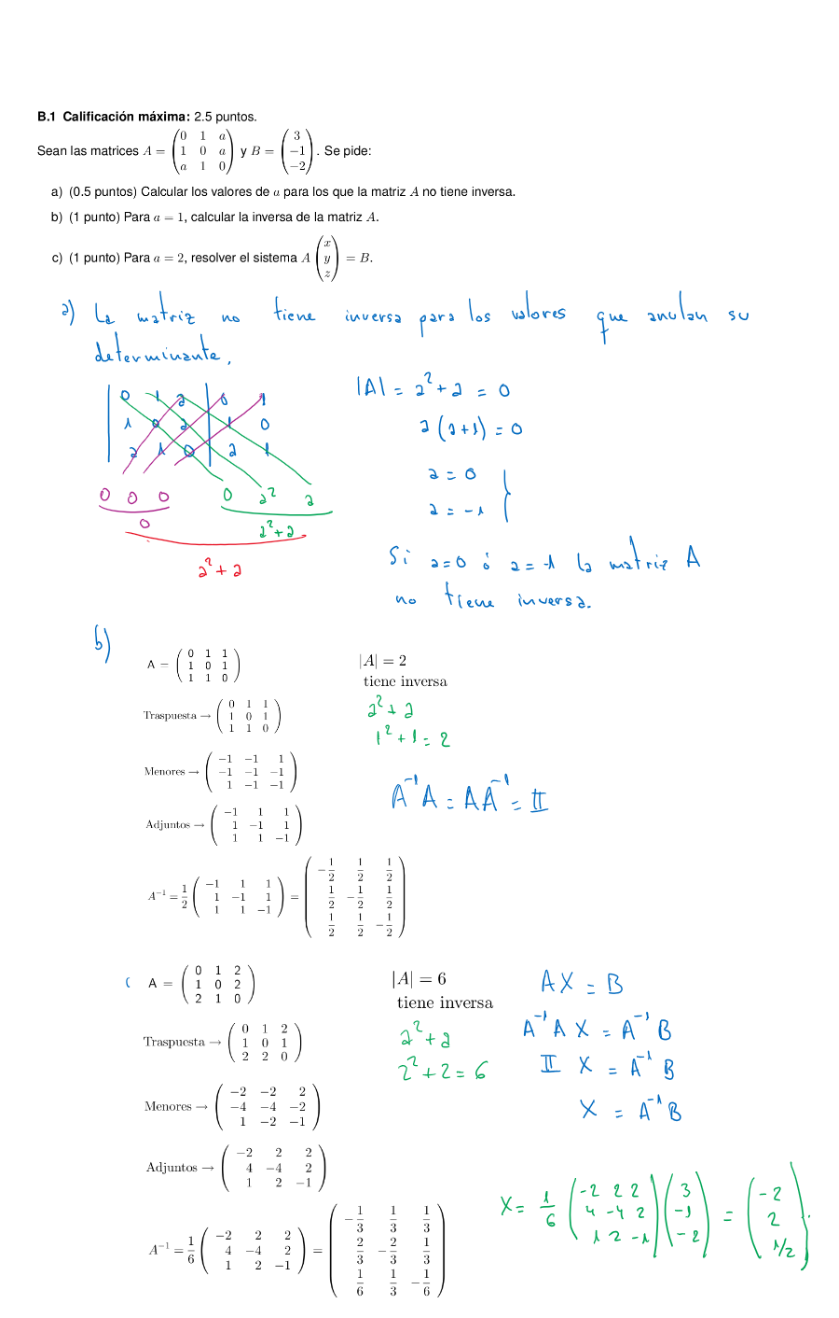 B.1 Calificación máxima: 2.5 puntos.
Sean las matrices A = \begin{pmatrix} 0 & 1 & a \\ 1 & 0 & a \\ a & 1 & 0 \end{pmatrix} y B = \begin{pmatrix} 3 \\ -1 \\ -2 \end{pmatrix}. Se pide:
a) (0.5 puntos) Calcular los valores de a para los que la matriz A no tiene inversa.
b) (1 punto) Para a = 1, calcular la inversa de la matriz A.
c) (1 punto) Para a = 2, resolver el sistema A \begin{pmatrix} x \\ y \\ z \end{pmatrix} = B.
a) La matriz no tiene inversa para los valores que anulan su
determinante.
| 0 1 a | 0 1
| 1 0 a | 1 0
| a 1 0 | a 1
0 0 0 0 a² a
0 a²+a
a²+a
|A| = a²+a = 0
a(a+1) = 0
a = 0
a = -1 }
Si a=0 ó a=-1 la matriz A
no tiene inversa.
b)
A = \begin{pmatrix} 0 & 1 & 1 \\ 1 & 0 & 1 \\ 1 & 1 & 0 \end{pmatrix}
|A| = 2
tiene inversa
a²+a
1²+1=2
Traspuesta → \begin{pmatrix} 0 & 1 & 1 \\ 1 & 0 & 1 \\ 1 & 1 & 0 \end{pmatrix}
Menores → \begin{pmatrix} -1 & -1 & 1 \\ -1 & -1 & -1 \\ 1 & -1 & -1 \end{pmatrix}
A⁻¹A = AA⁻¹ = II
Adjuntos → \begin{pmatrix} -1 & 1 & 1 \\ 1 & -1 & 1 \\ 1 & 1 & -1 \end{pmatrix}
A⁻¹ = \frac{1}{2} \begin{pmatrix} -1 & 1 & 1 \\ 1 & -1 & 1 \\ 1 & 1 & -1 \end{pmatrix} = \begin{pmatrix} -\frac{1}{2} & \frac{1}{2} & \frac{1}{2} \\ \frac{1}{2} & -\frac{1}{2} & \frac{1}{2} \\ \frac{1}{2} & \frac{1}{2} & -\frac{1}{2} \end{pmatrix}
c A = \begin{pmatrix} 0 & 1 & 2 \\ 1 & 0 & 2 \\ 2 & 1 & 0 \end{pmatrix}
|A| = 6
tiene inversa
a²+a
2²+2=6
Traspuesta → \begin{pmatrix} 0 & 1 & 2 \\ 1 & 0 & 1 \\ 2 & 2 & 0 \end{pmatrix}
Menores → \begin{pmatrix} -2 & -2 & 2 \\ -4 & -4 & -2 \\ 1 & -2 & -1 \end{pmatrix}
Adjuntos → \begin{pmatrix} -2 & 2 & 2 \\ 4 & -4 & 2 \\ 1 & 2 & -1 \end{pmatrix}
A⁻¹ = \frac{1}{6} \begin{pmatrix} -2 & 2 & 2 \\ 4 & -4 & 2 \\ 1 & 2 & -1 \end{pmatrix} = \begin{pmatrix} -\frac{1}{3} & \frac{1}{3} & \frac{1}{3} \\ \frac{2}{3} & -\frac{2}{3} & \frac{1}{3} \\ \frac{1}{6} & \frac{1}{3} & -\frac{1}{6} \end{pmatrix}
AX = B
A⁻¹AX = A⁻¹B
II X = A⁻¹B
X = A⁻¹B
X = \frac{1}{6} \begin{pmatrix} -2 & 2 & 2 \\ 4 & -4 & 2 \\ 1 & 2 & -1 \end{pmatrix} \begin{pmatrix} 3 \\ -1 \\ -2 \end{pmatrix} = \begin{pmatrix} -2 \\ 2 \\ 1/2 \end{pmatrix}.